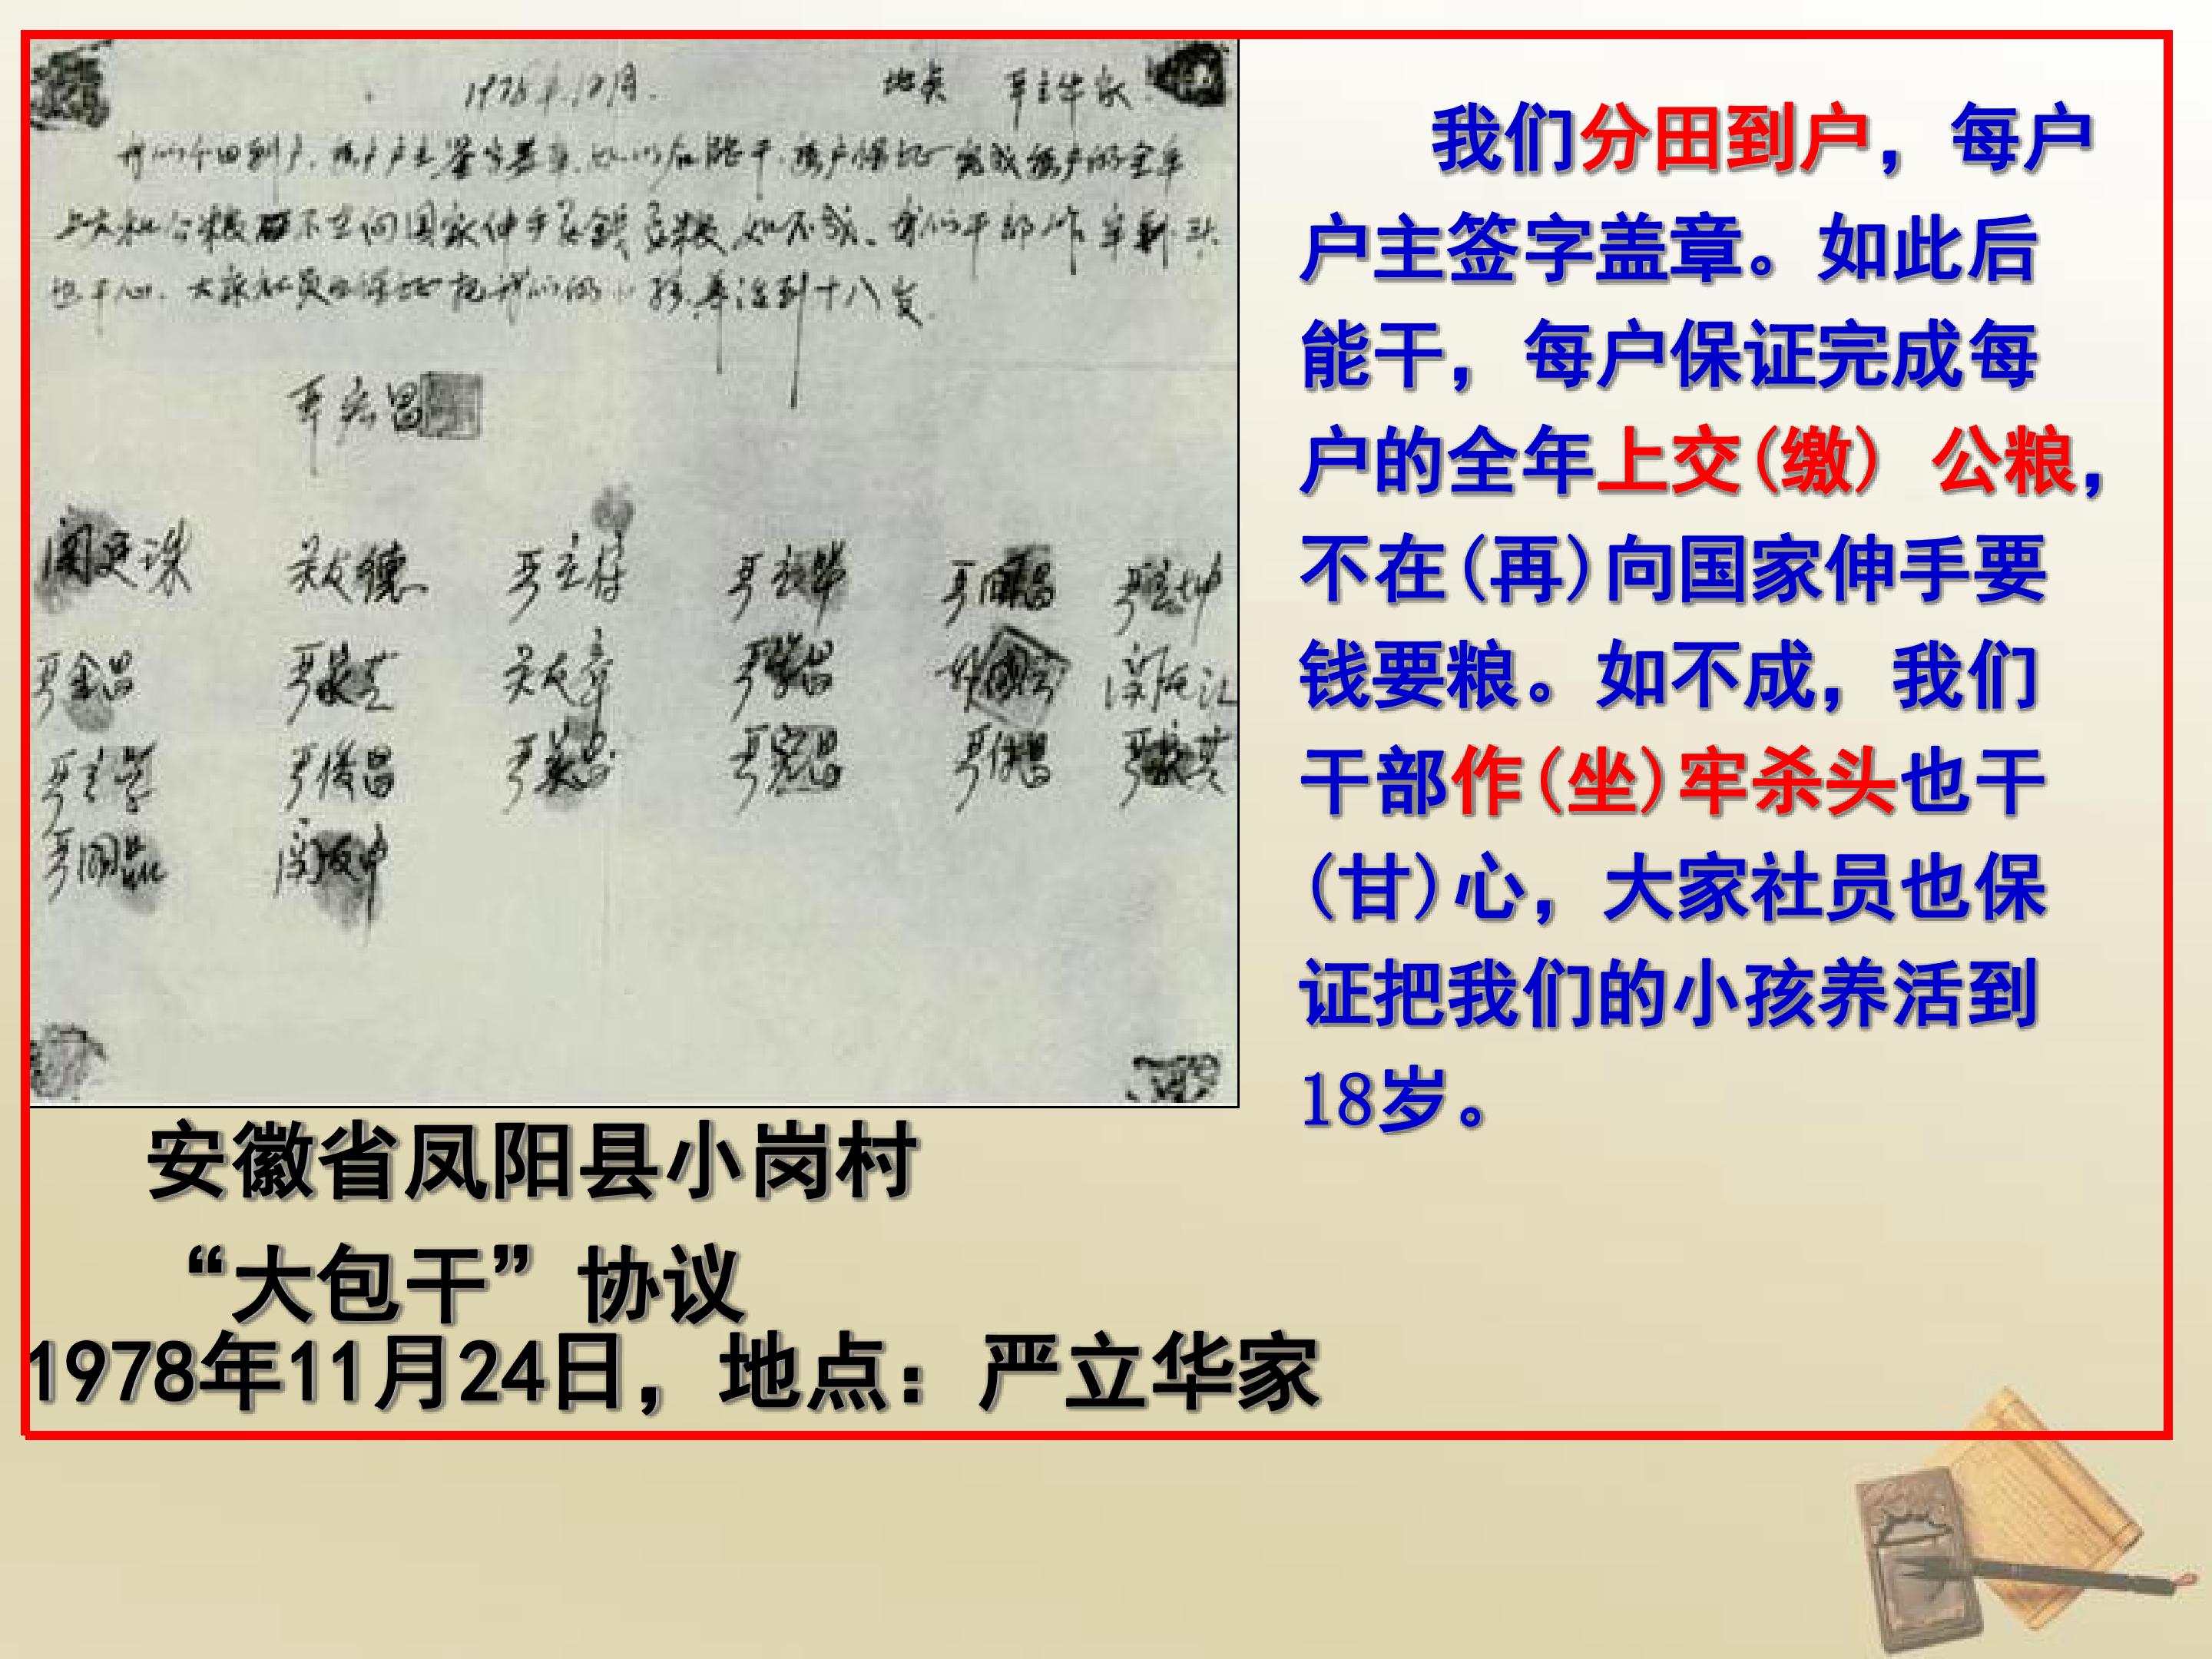 1978年12月. 地点 严立华家
我们分田到户,每户户主签字盖章,如以后能干,每户保证完成每户的全年
上交和公粮,不在向国家伸手要钱要粮,如不成,我们干部作牢杀头
也干心,大家社员也保证把我们的小孩养活到十八岁.
严宏昌
关友德 严立符 严立华 严国昌 严立坤
严金昌 关友章 严学昌
严立学 严俊昌 严美昌 严宏昌 严付昌
严国品 阎友申
我们分田到户，每户
户主签字盖章。如此后
能干，每户保证完成每
户的全年上交(缴) 公粮，
不在(再)向国家伸手要
钱要粮。如不成，我们
干部作(坐)牢杀头也干
(甘)心，大家社员也保
证把我们的小孩养活到
18岁。
安徽省凤阳县小岗村
“大包干”协议
1978年11月24日，地点：严立华家